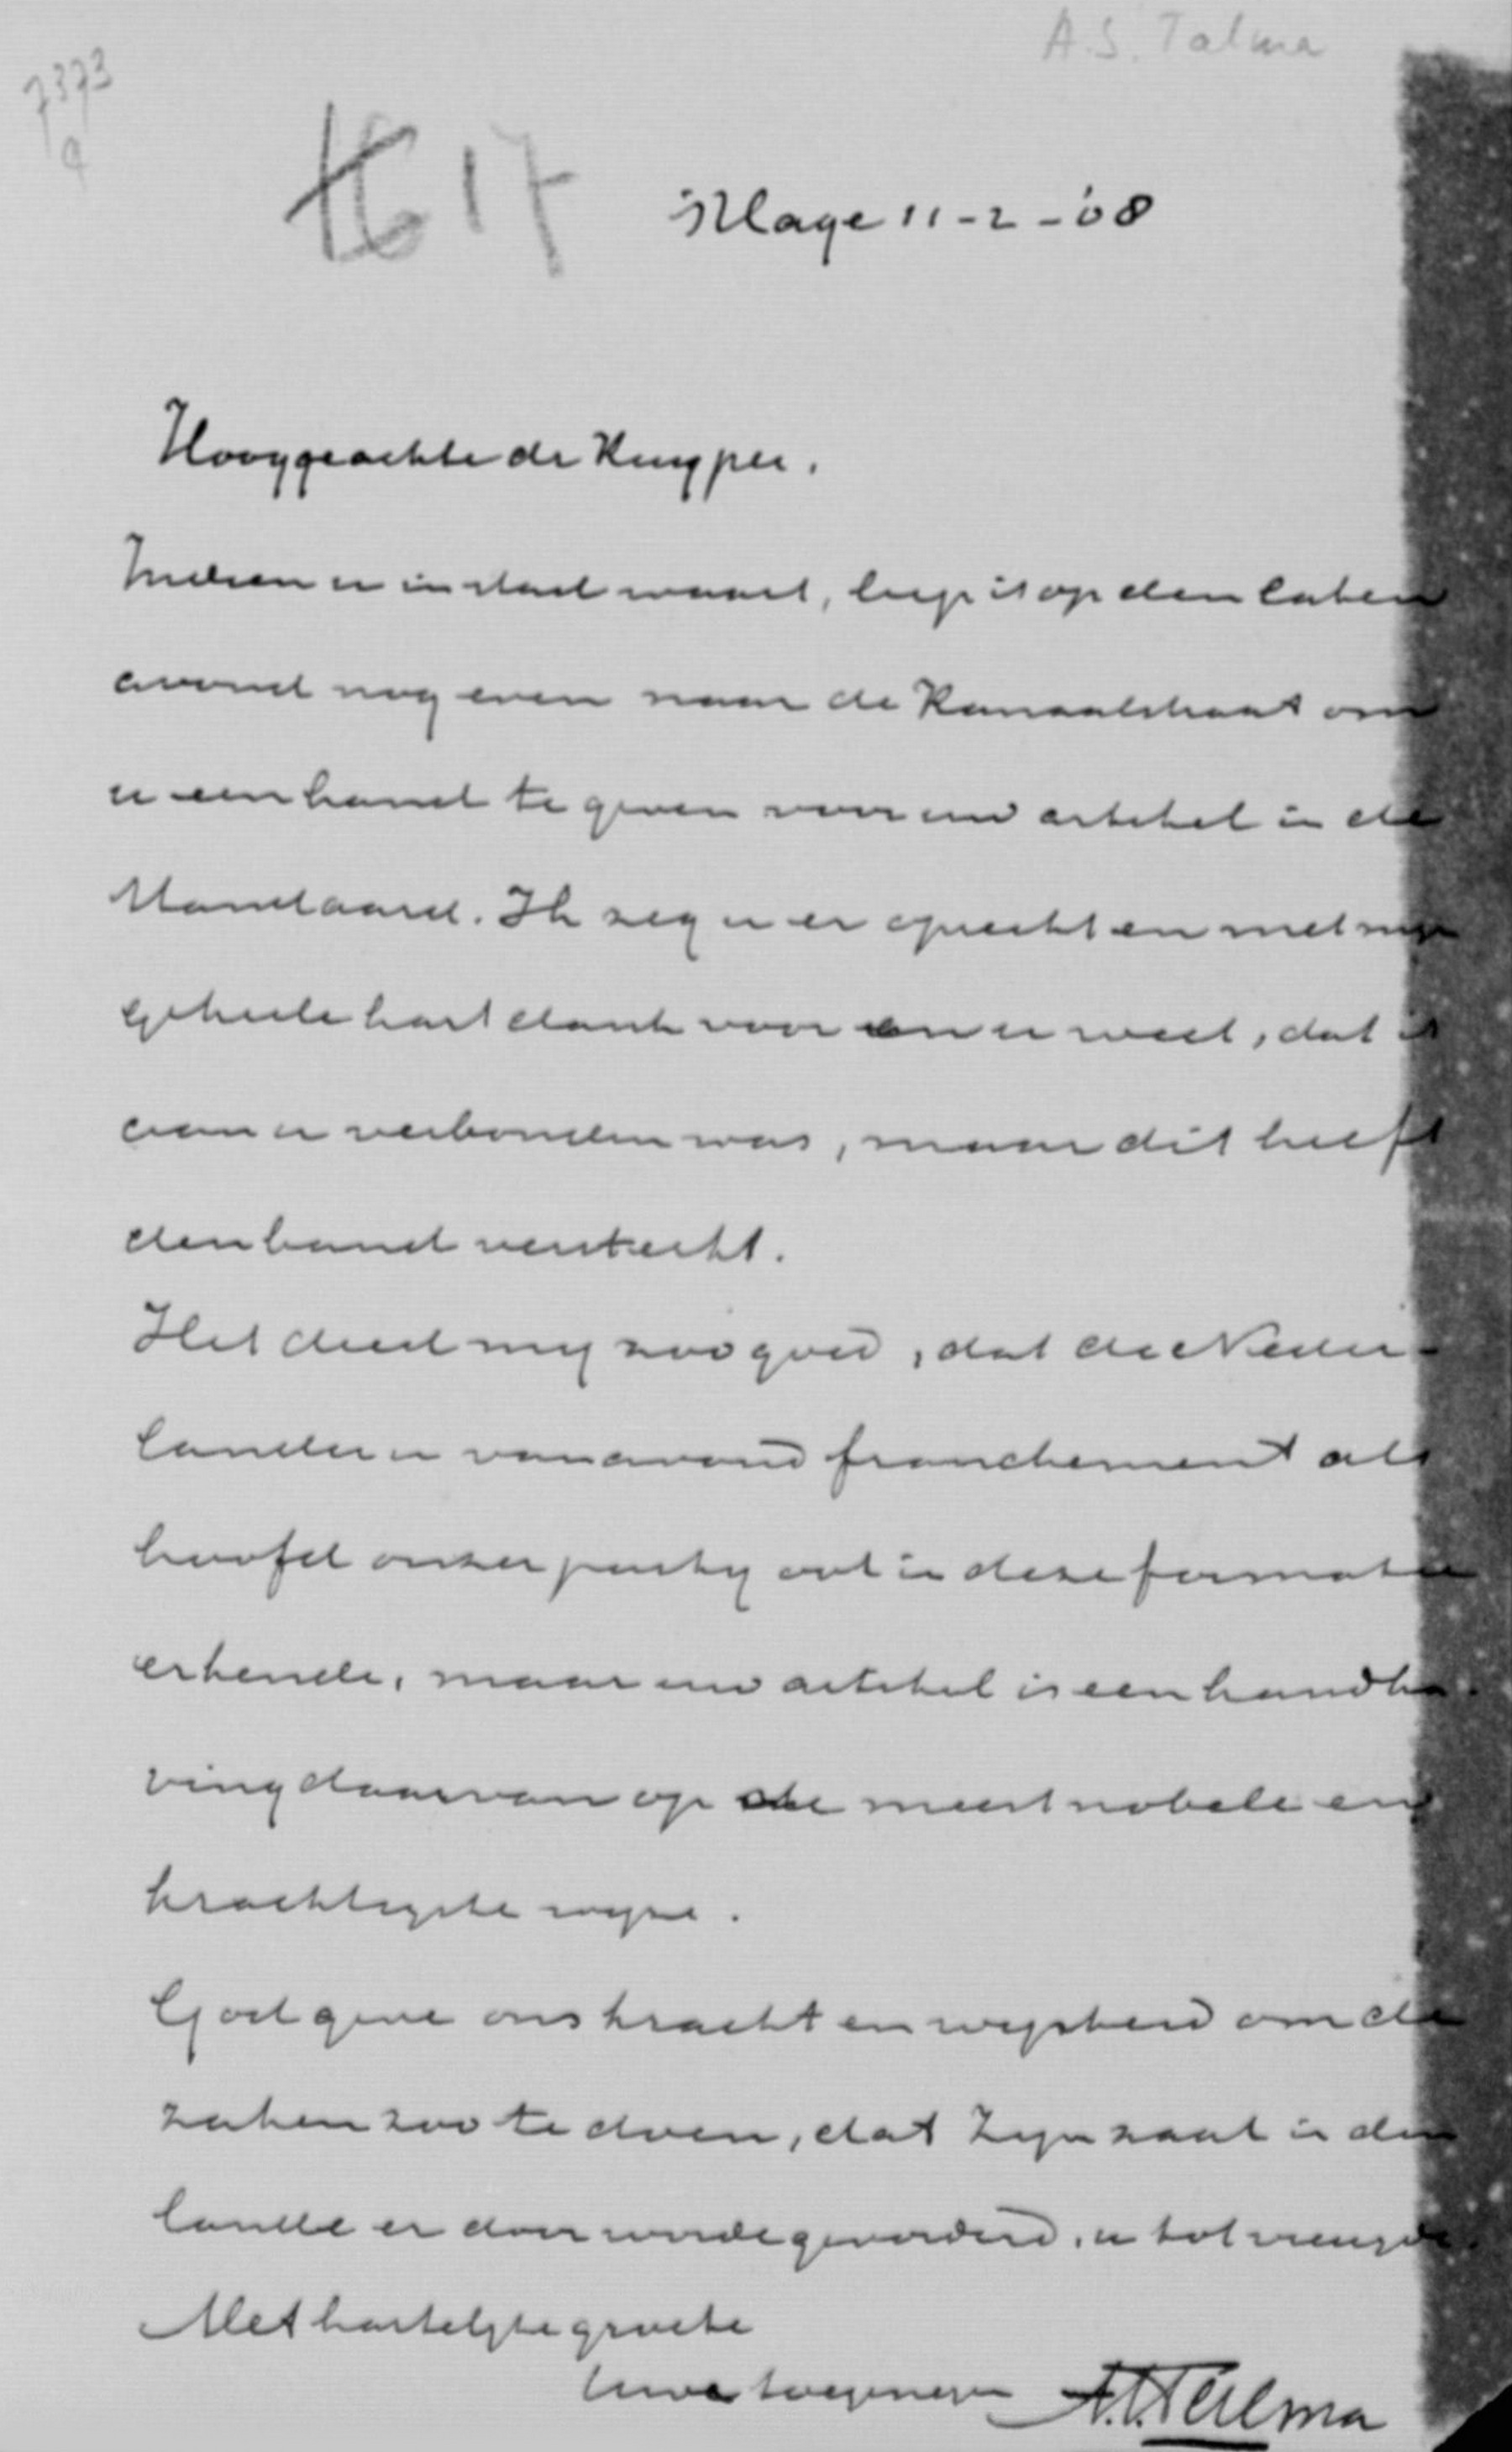 A.S. Talma
7373
a
17
'sHage 11-2-'08
Hooggeachte dr Kuyper.
Indien u in stad waart, liep ik op den laten
avond nog even naar de Kanaalstraat om
u een hand te geven voor uw artikel in de
Standaard. Ik zeg u er oprecht en met myn
geheele hart dank voor en u weet, dat ik
aan u verbonden was, maar dit heeft
den band versterkt.
Het deed my zoo goed, dat de Neder-
lander u vanavond franchement als
hoofd onzer party ook in deze formatie
erkende, maar uw artikel is een handha-
ving daarvan op de meest nobele en
krachtigste wyze.
God geve ons kracht en wysheid om de
zaken zoo te doen, dat Zyn zaak in den
lande er door worde gevorderd, u tot vreugde.
Met hartelyke groete
Uwe toegenegen A.S. Talma